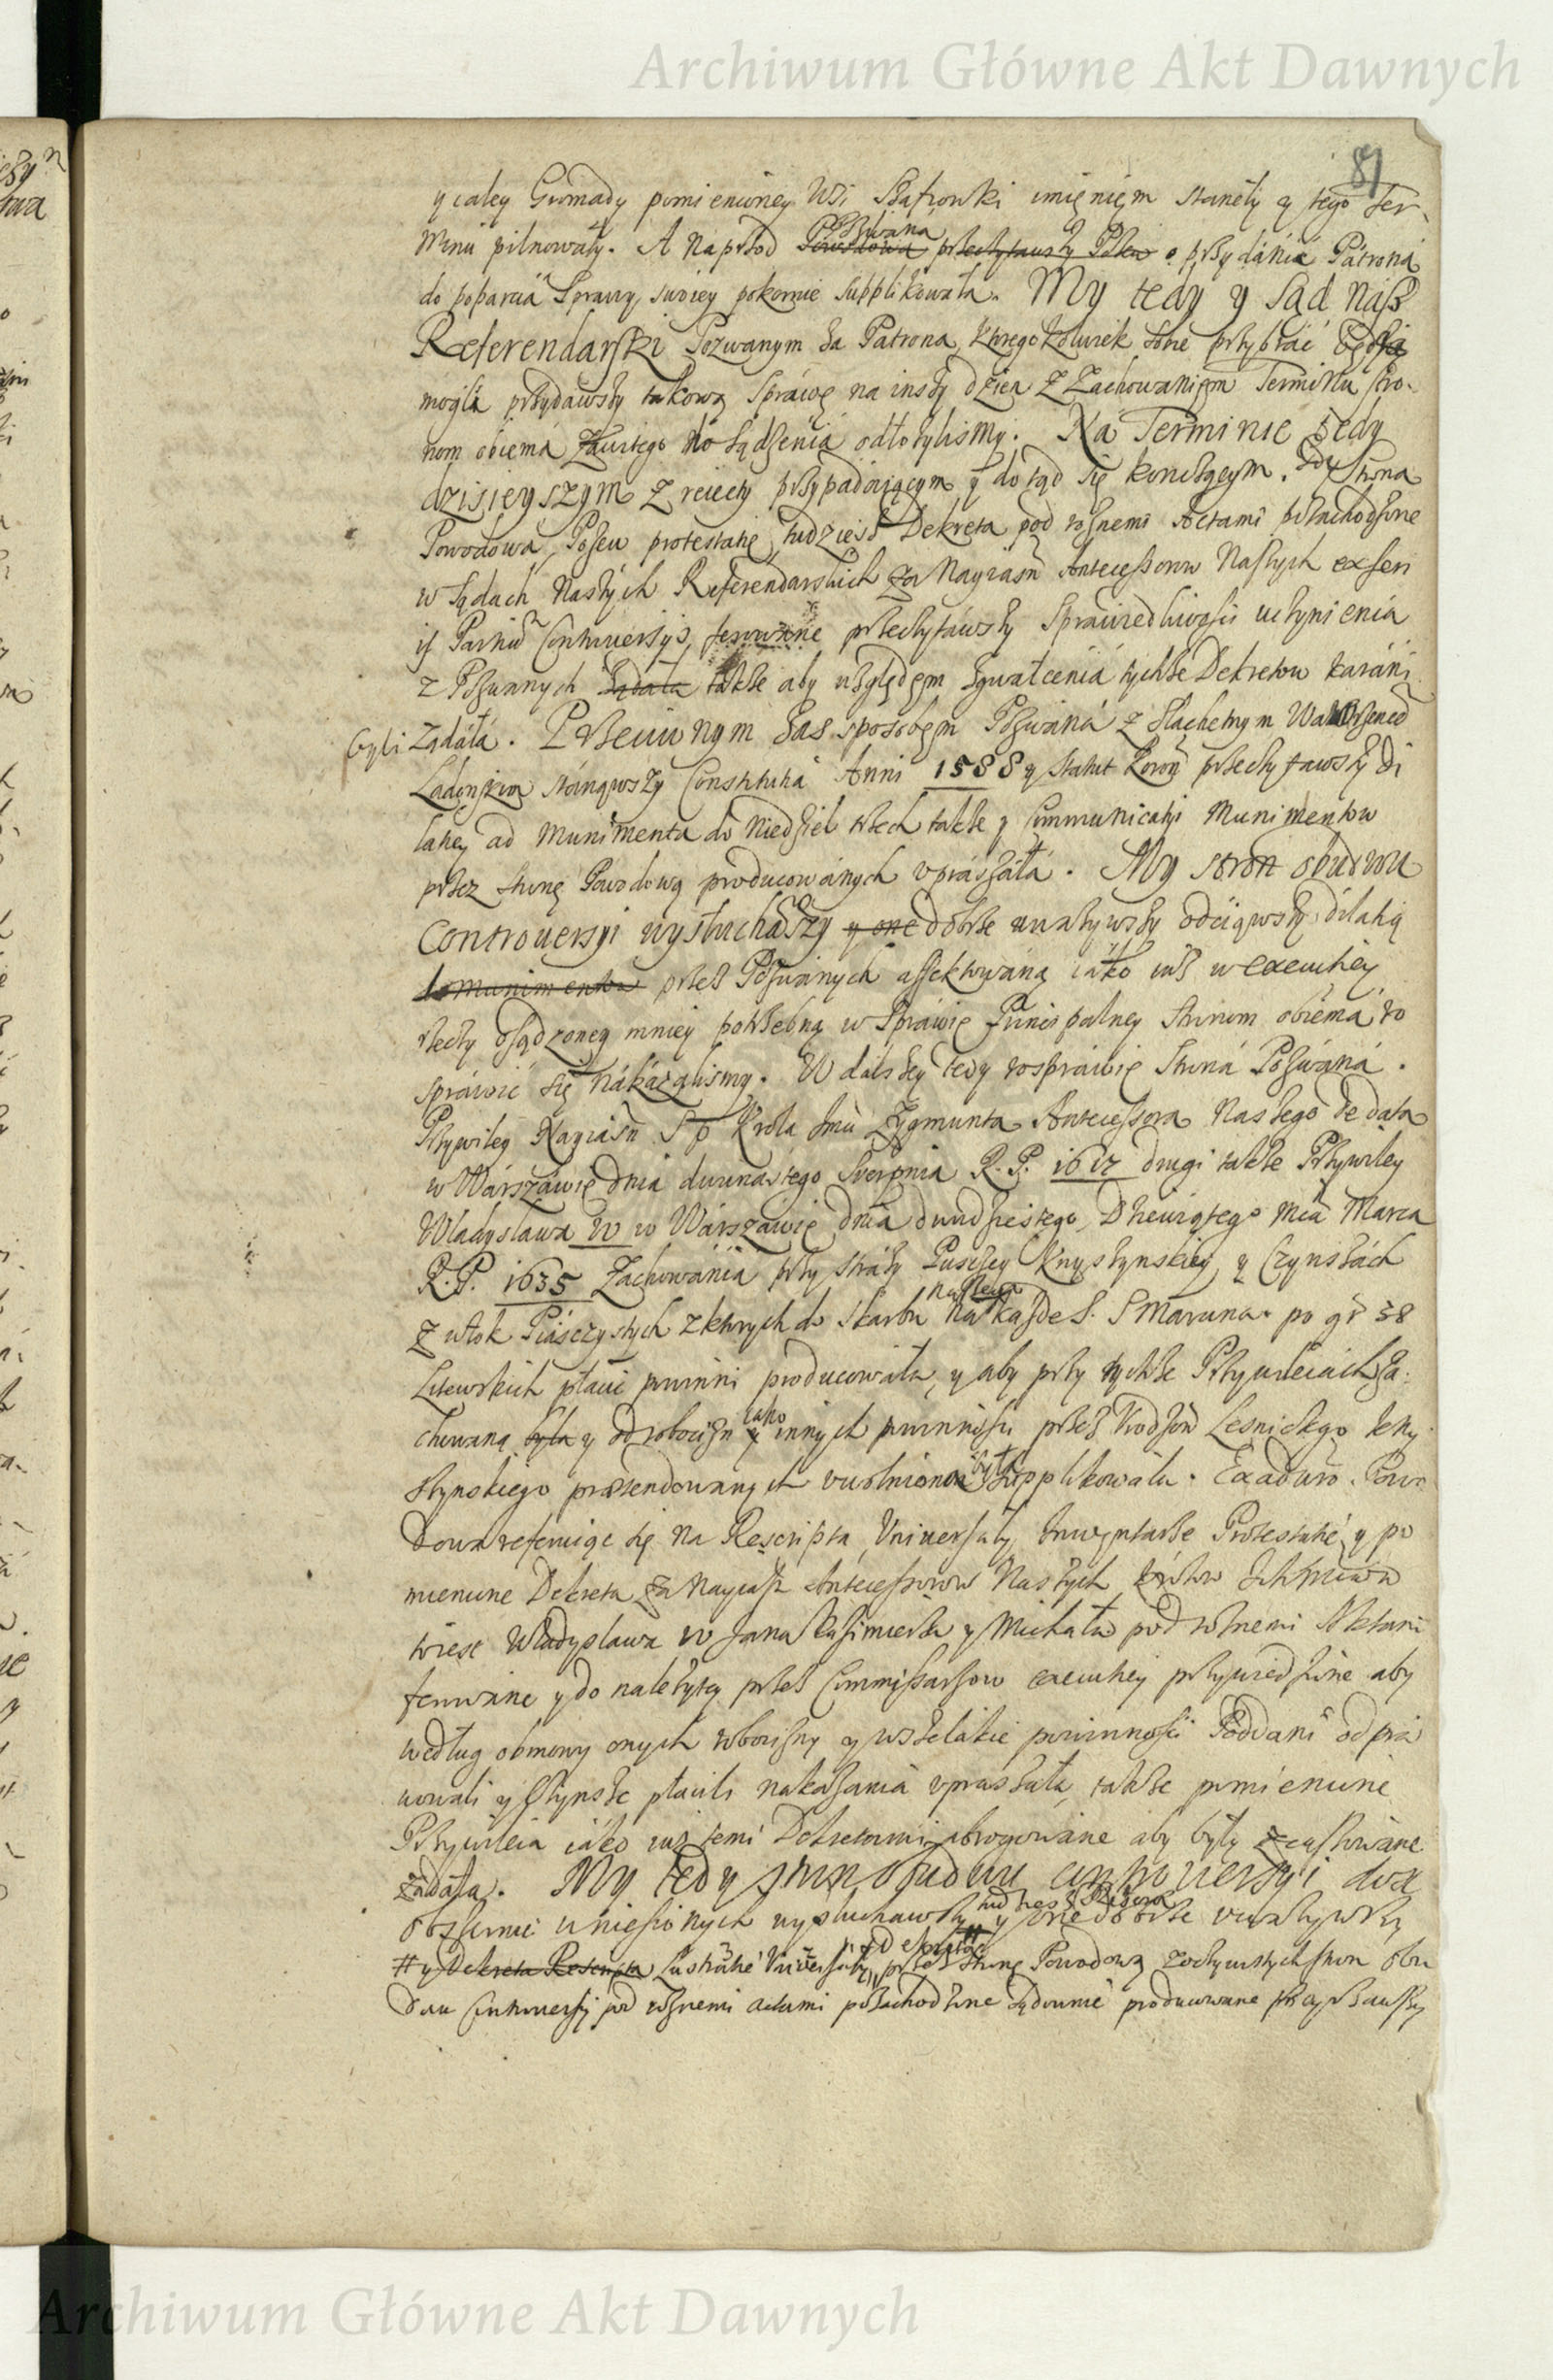 Archiwum Główne Akt Dawnych
81
y całey Gromady pomienioney Wsi imięniem stanęły y tego Ter-
minu pilnowały. A naprzod Pozwana o przydanie Patrona
do poparcia Sprawy swoiey pokornie supplikowała. My tedy y sąd nasz
Referendarski Pozwanym za Patrona ktoregokolwiek sobie przybrać będą
mogli przydawszy takową Sprawę na inszy dzien z Zachowaniem Terminu stro-
nom obiema zawitego do sądzenia odłożylismy. Na Terminie tedy
dzisieyszym z rzeczy przypadaiącym y dotąd się kończącym. Gdy strona
Powodowa Pozew protestatię tudziesz Dekreta pod roznemi Actami
w sądach Naszych Referendarskich za Nayiasn Antecessorow Naszych ex seri
is Partiu Controversys ferowane przeczytawszy sprawiedliwosci uczynienia
z Pozwanych także aby względem zgwałcenia tychże Dekretow karani
byli Ządała. Przeciwnym zas sposobem Pozwana z Slachetnym
stanąwszy Constitutią Anni 1588 y Statut Koron przeczytawszy Di
latiey ad Munimenta do Niedziel trzech także y Communicatyi Munimentow
przez stronę Powodową producowanych upraszała. My stron obudwu
Controversyi wysłuchaszy y one dobrze uwazywszy odciąwszy dilatią
do munimentow przez Pozwanych affektowaną iako iuż w executiey
rzeczy osądzoney mniey potrzebną w sprawie Principalney Stronom obiema ro
sprawić się nakazalismy. W dalszey tedy rosprawie Strona Pozwana.
Przywiley Nayiasn S P Krola Jmci Zygmunta Antecessora Naszego de data
w Warszawie dnia dwunastego Sierpnia R. P. 1617 drugi także Przywiley
Władysława IV w Warszawie dnia dwudziestego Dziewiątego Mca Marca
R. P. 1635 Zachowania przy straży Puszczey Knyszynskiey y Czynszach
z włok Piasczystych z ktorych do skarbu naszego na kazde S. S Marcina po gr 38
Litewskich płacić powinni producowała, y aby przy tychże Przywileiach za-
chowaną była y od robocizn iako y innych powinnosci przez Urodzon Lesniczego kny
szynskiego praetendowanych uwolniona była supplikowała. Ex adverso Powo
dowa referuiąc się na Rescripta, Universały, Inwentarze Protestatie y po
mienione Dekreta za Nayiasn Antecessorow Naszych
Władysława IV Jana Kazimierza y Michała pod roznemi Aktami
ferowane y do należytey przez Commissarzow executiey przywiedzione aby
według obmowy onych robocizny y wszelakie powinnosci Poddani odpra
wowali y Czynsze płacili nakazania upraszała, także pomienione
Przywileia iako iuż temi Dekretami abrogowane aby były zcassowane
żądała. My tedy stron obudwu controversyi dwa
obszernie wniesionych wysłuchawszy y one dobrze uwazywszy
# y Dekreta Rescripta Lustratie Universały przez stronę Powodową z oczywistych stron obu
dwu Controversyi pod roznemi actami sądownie producowane
Archiwum Główne Akt Dawnych